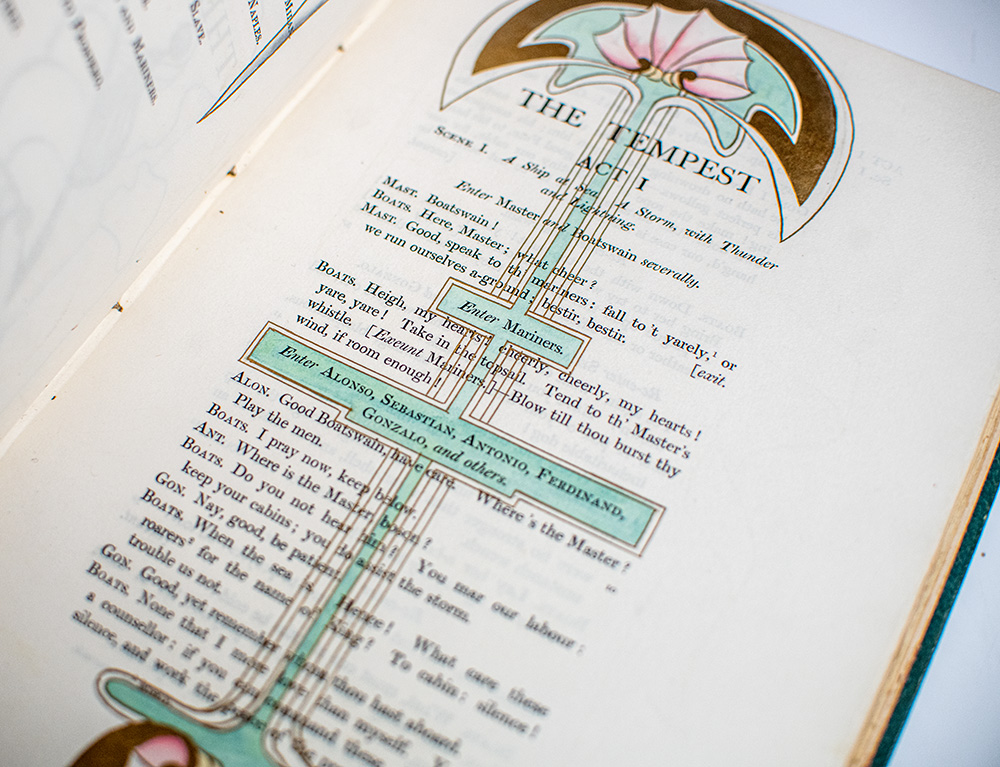 Naples.
Slave.
and Mariners.
to Prospero.
THE TEMPEST
ACT I
Scene I. A Ship at Sea. A Storm, with Thunder
and Lightning.
Enter Master and Boatswain severally.
Mast. Boatswain!
Boats. Here, Master; what cheer?
Mast. Good, speak to th' mariners: fall to't yarely,¹ or
we run ourselves a-ground; bestir, bestir. [exit.
Enter Mariners.
Boats. Heigh, my hearts! cheerly, cheerly, my hearts!
yare, yare! Take in the topsail. Tend to th' Master's
whistle. [Exeunt Mariners.]—Blow till thou burst thy
wind, if room enough!
Enter Alonso, Sebastian, Antonio, Ferdinand,
Gonzalo, and others.
Alon. Good Boatswain, have care. Where's the Master?
Play the men.
Boats. I pray now, keep below.
Ant. Where is the Master, boson?
Boats. Do you not hear him? You mar our labour:
keep your cabins; you do assist the storm.
Gon. Nay, good, be patient.
Boats. When the sea is. Hence! What care these
roarers² for the name of King? To cabin: silence!
trouble us not.
Gon. Good, yet remember whom thou hast aboard.
Boats. None that I more love than myself.
a counsellor: if you can command these
silence, and work the of the